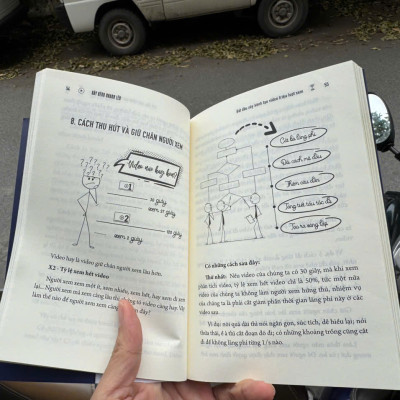 54
HÃY QUAY NHANH LÊN
B. CÁCH THU HÚT VÀ GIỮ CHÂN NGƯỜI XEM
Video nào hay hơn?
1
30 giây
100% : 2 giây
2
100% : 2 giây
Video hay là video giữ chân người xem lâu hơn.
X2 - Tỷ lệ xem hết video
Người xem xem một tí, xem nhiều, xem hết, hay xem đi xem
lại... Người xem mà xem càng lâu thì chứng tỏ video càng hay. Vậy
làm thế nào để người xem xem càng đây?
55
Cắt bỏ lãng phí
Đầu cách mở đầu
Thêm câu dẫn
Tăng tiết tấu tốc độ
Tạo ra vòng lặp
Có những cách sau đây:
Thứ nhất: Nếu video của chúng ta có 30 giây, mà khi xem
phân tích video, tỷ lệ xem hết video chỉ là 50%, tức một nửa
video của chúng ta không làm người xem hứng thú, nhiệm vụ
của chúng ta là phải cắt giảm phần thời gian lãng phí này ở các
video sau.
Ví dụ: nói quá dài thì nói ngắn gọn, súc tích, dễ hiểu lại; nói
thừa thãi, ề à thì cắt đoạn đó đi; có những khoảng trống cũng cắt
đi để không lãng phí từng 1/s nào.